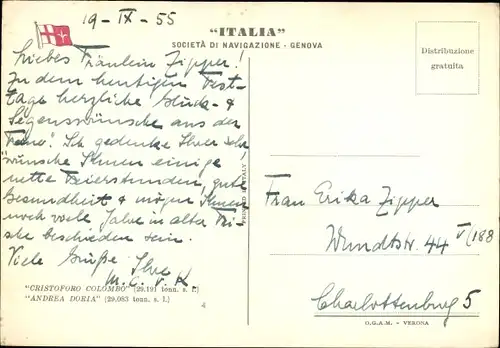 19-IX-55
Liebes Fräulein Zipper!
Zu dem heutigen Fest-
tage herzliche Glück- &
Segenswünsche aus der
Ferne! Ich gedenke Ihrer sehr
wünsche Ihnen einige
nette Feierstunden, gute
Gesundheit & mögen Ihnen
noch viele Jahre in alter Fri-
sche beschieden sein.
Viele Grüße Ihre
M. C. v. K
"CRISTOFORO COLOMBO" (29.191 tonn. s. l.)
"ANDREA DORIA" (29.083 tonn. s. l.)
4
"ITALIA"
SOCIETÀ DI NAVIGAZIONE - GENOVA
PRINTED IN ITALY
Distribuzione
gratuita
Frau Erika Zipper
Wundtstr. 44 V/188
Charlottenburg 5
O.G.A.M. - VERONA